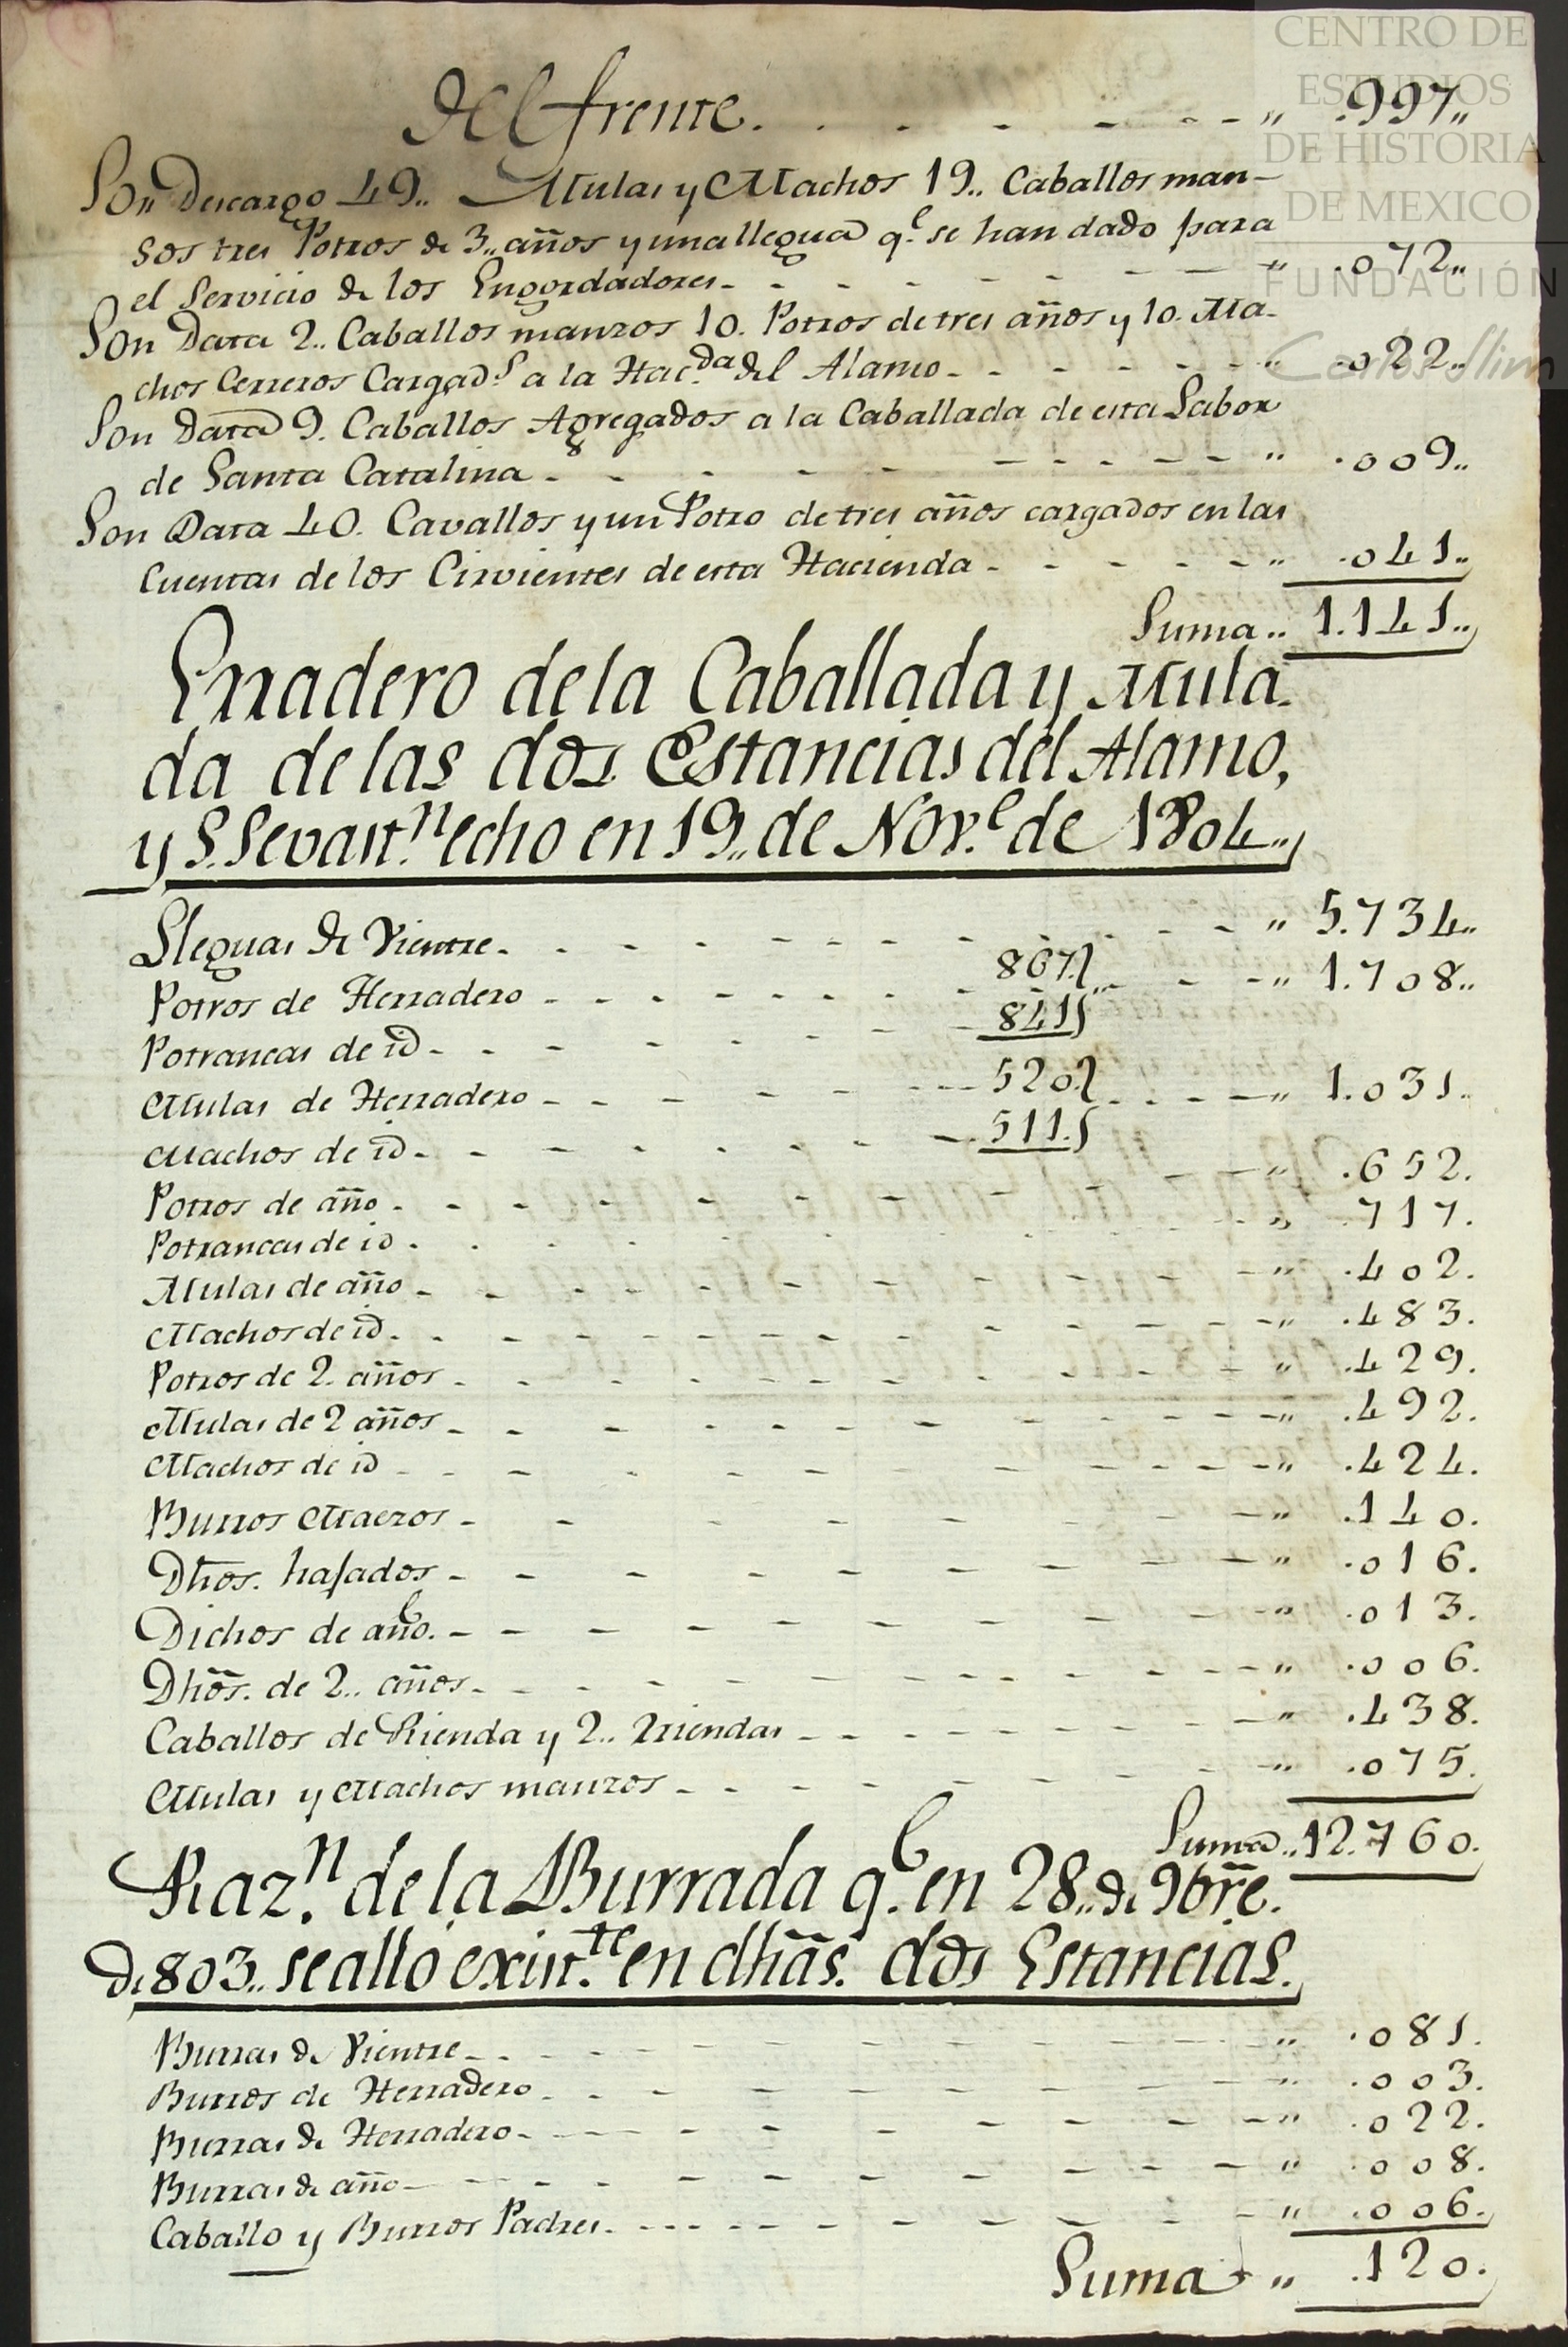 CENTRO DE
ESTUDIOS
DE HISTORIA
DE MEXICO
FUNDACIÓN
Carlos Slim
Del frente. . . . - - - - - " .997..
Son Descargo 49.. Mulas y Machos 19.. Caballos man-
sos tres Potros de 3.. años y una llegua q.e se han dado para
el Servicio de los Engordadores - - - - - - " .072..
Son Data 2.. Caballos manzos 10. Potros de tres años y 10. Ma-
chos Cerreros Cargad.s a la Hac.da del Alamo - - - - - " .022..
Son Data 9. Caballos Agregados a la Caballada de esta Labor
de Santa Catalina - - - - - - - - - " .009..
Son Data 40. Cavallos y un Potro de tres años cargados en las
Cuentas de los Cirvientes de esta Hacienda - - - - - " .041..
Suma .. 1.141..
Erradero de la Caballada y Mula-
da de las dos Estancias del Alamo,
y S. Sevast.n echo en 19.. de Nov.e de 1804..
Lleguas de Vientre - - - - - - - - - " 5.734..
Potros de Herradero - - - - - - - 867. - - - " 1.708..
Potrancas de id - - - - - - - 841
Mulas de Herradero - - - - - - 520. - - - " 1.031..
Machos de id - - - - - - - 511.
Potros de año - - - - - - - - - " .652.
Potrancas de id - - - - - - - - - " .717.
Mulas de año - - - - - - - - - " .402.
Machos de id - - - - - - - - - " .483.
Potros de 2. años - - - - - - - - - " .429.
Mulas de 2 años - - - - - - - - - " .492.
Machos de id - - - - - - - - - " .424.
Burros Maeros - - - - - - - - - " .140.
Dhos. hasados - - - - - - - - - " .016.
Dichos de año. - - - - - - - - - " .013.
Dhõs. de 2.. años - - - - - - - - - " .006.
Caballos de Rienda y 2.. rriendas - - - - - - - " .438.
Mulas y Machos manzos - - - - - - - - " .075.
Suma .. 12.760.
Raz.n de la Burrada q.e en 28.. de 9bre.
de 803.. se allo exist.te en dhãs. dos Estancias.
Burras de Vientre - - - - - - - - - " .081.
Burros de Herradero - - - - - - - - - " .003.
Burras de Herradero - - - - - - - - - " .022.
Burras de año - - - - - - - - - " .008.
Caballo y Burros Padres - - - - - - - - - " .006.
Suma - " .120.